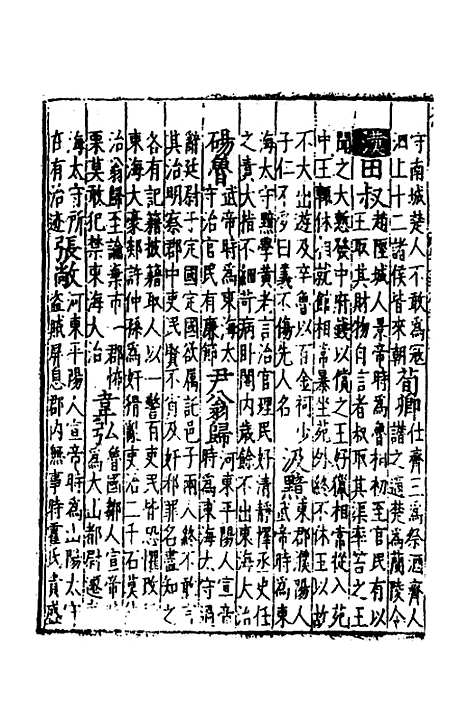 守南城楚人不敢為冦
泗上十二諸侯皆來朝
荀卿
仕齊三為祭酒齊人
譖之適楚為蘭陵令
漢田叔
趙陘城人景帝時為魯相初至官民有以
王取其財物自言者叔取其渠率笞之王
聞之大慙發中府錢以償之王好獵相常從入苑
中王輒休相就館相常暴坐苑外終不休王以故
不大出遊及卒魯以百金祠少
子仁不受曰義不傷先人名
汲黯
東郡濮陽人
武帝時為東
海太守黯學黃老言治官理民好清靜擇丞史任
之責大指不細苛病臥閣内歲餘不出東海大治
碭魯
武帝時為東海太
守治官民有廉節
尹翁歸
河東平陽人宣
帝時為東海太守過
辭廷尉于定國定國欲屬託邑子兩人終不敢見
其治明察郡中吏民賢不肖及奸邪罪名盡知之
各有記籍披籍取人以一警百吏民皆恐懼改
東海大豪郯許仲孫為奸猾亂吏治二千石莫
治翁歸至論棄市一郡怖
栗莫敢犯禁東海大治
韋弘
魯國鄒人宣帝
為太山都尉遷東
海太守所
在有治迹
張敞
河東平陽人宣帝時為山陽太守
盜賊屏息郡内無事時霍氏貴盛